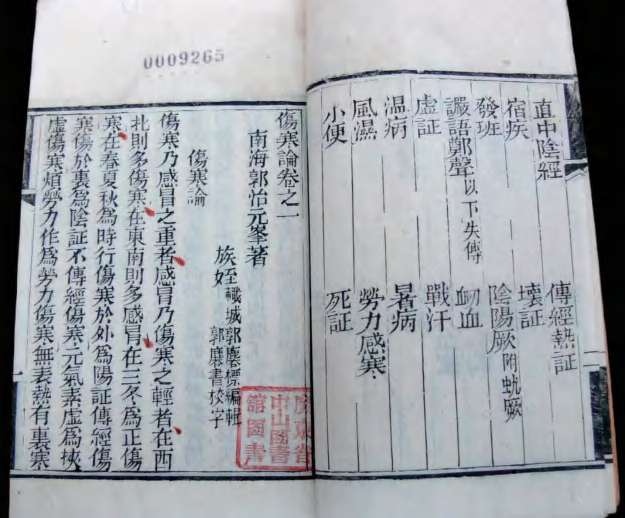 直中陰經 傳經熱証
宿疾 壞証
發班 陰陽厥附蚘厥
讝語鄭聲以下失傳 衂血
虛証 戰汗
温病 暑病
風濕 勞力感寒
小便 死証
0009265
傷寒論卷之一
南海郭治元峯著
族姪城郭麐標編輯
郭麐書校字
傷寒論
傷寒乃感冒之重者感冒乃傷寒之輕者在西
北則多傷寒在東南則多感冒在三冬為正傷
寒在春夏秋為時行傷寒於外為陽証傳經傷
寒傷於裏為陰証不傳經傷寒元氣素虛為挾
虛傷寒煩勞力作為勞力傷寒無表熱有裏寒
廣東省
中山圖書
館圖書